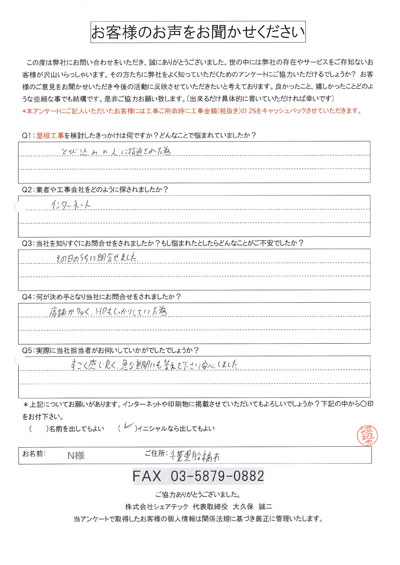 お客様のお声をお聞かせください
この度は弊社にお問い合わせをいただき、誠にありがとうございました。世の中には弊社の存在やサービスをご存知ないお
客様が沢山いらっしゃいます。その方たちに弊社をよく知っていただくためのアンケートにご協力いただけるでしょうか? お客
様のご意見をお聞かせいただき今後の活動に反映させていただきたいと考えております。良かったこと、嬉しかったことどのよ
うな些細な事でも結構です。是非ご協力お願い致します。(出来るだけ具体的に書いていただければ幸いです)
*本アンケートにご記入いただいたお客様には工事ご用命時に工事金額(税抜き)の 2%をキャッシュバックさせていただきます。
Q1:屋根工事を検討したきっかけは何ですか? どんなことで悩まれていましたか?
とび込みの人に指適された為
Q2:業者や工事会社をどのように探されましたか?
インターネット
Q3:当社を知りすぐにお問合せをされましたか? もし悩まれたとしたらどんなことがご不安でしたか?
その日のうちに問合せました
Q4:何が決め手となり当社にお問合せをされましたか?
店舗が多く、HPもしっかりしていた為
Q5:実際に当社担当者がお伺いしていかがでしたでしょうか?
すごく感じ良く、急な質問にも答えて下さり安心しました
*上記についてお願いがあります。インターネットや印刷物に掲載させていただいてもよろしいでしょうか? 下記の中から〇印
をお付下さい。
( )名前を出してもよい (✓)イニシャルなら出してもよい
お名前: N様 ご住所: 千葉県船橋市
FAX 03-5879-0882
ご協力ありがとうございました。
株式会社シェアテック 代表取締役 大久保 誠二
当アンケートで取得したお客様の個人情報は関係法規に基づき厳正に管理いたします。